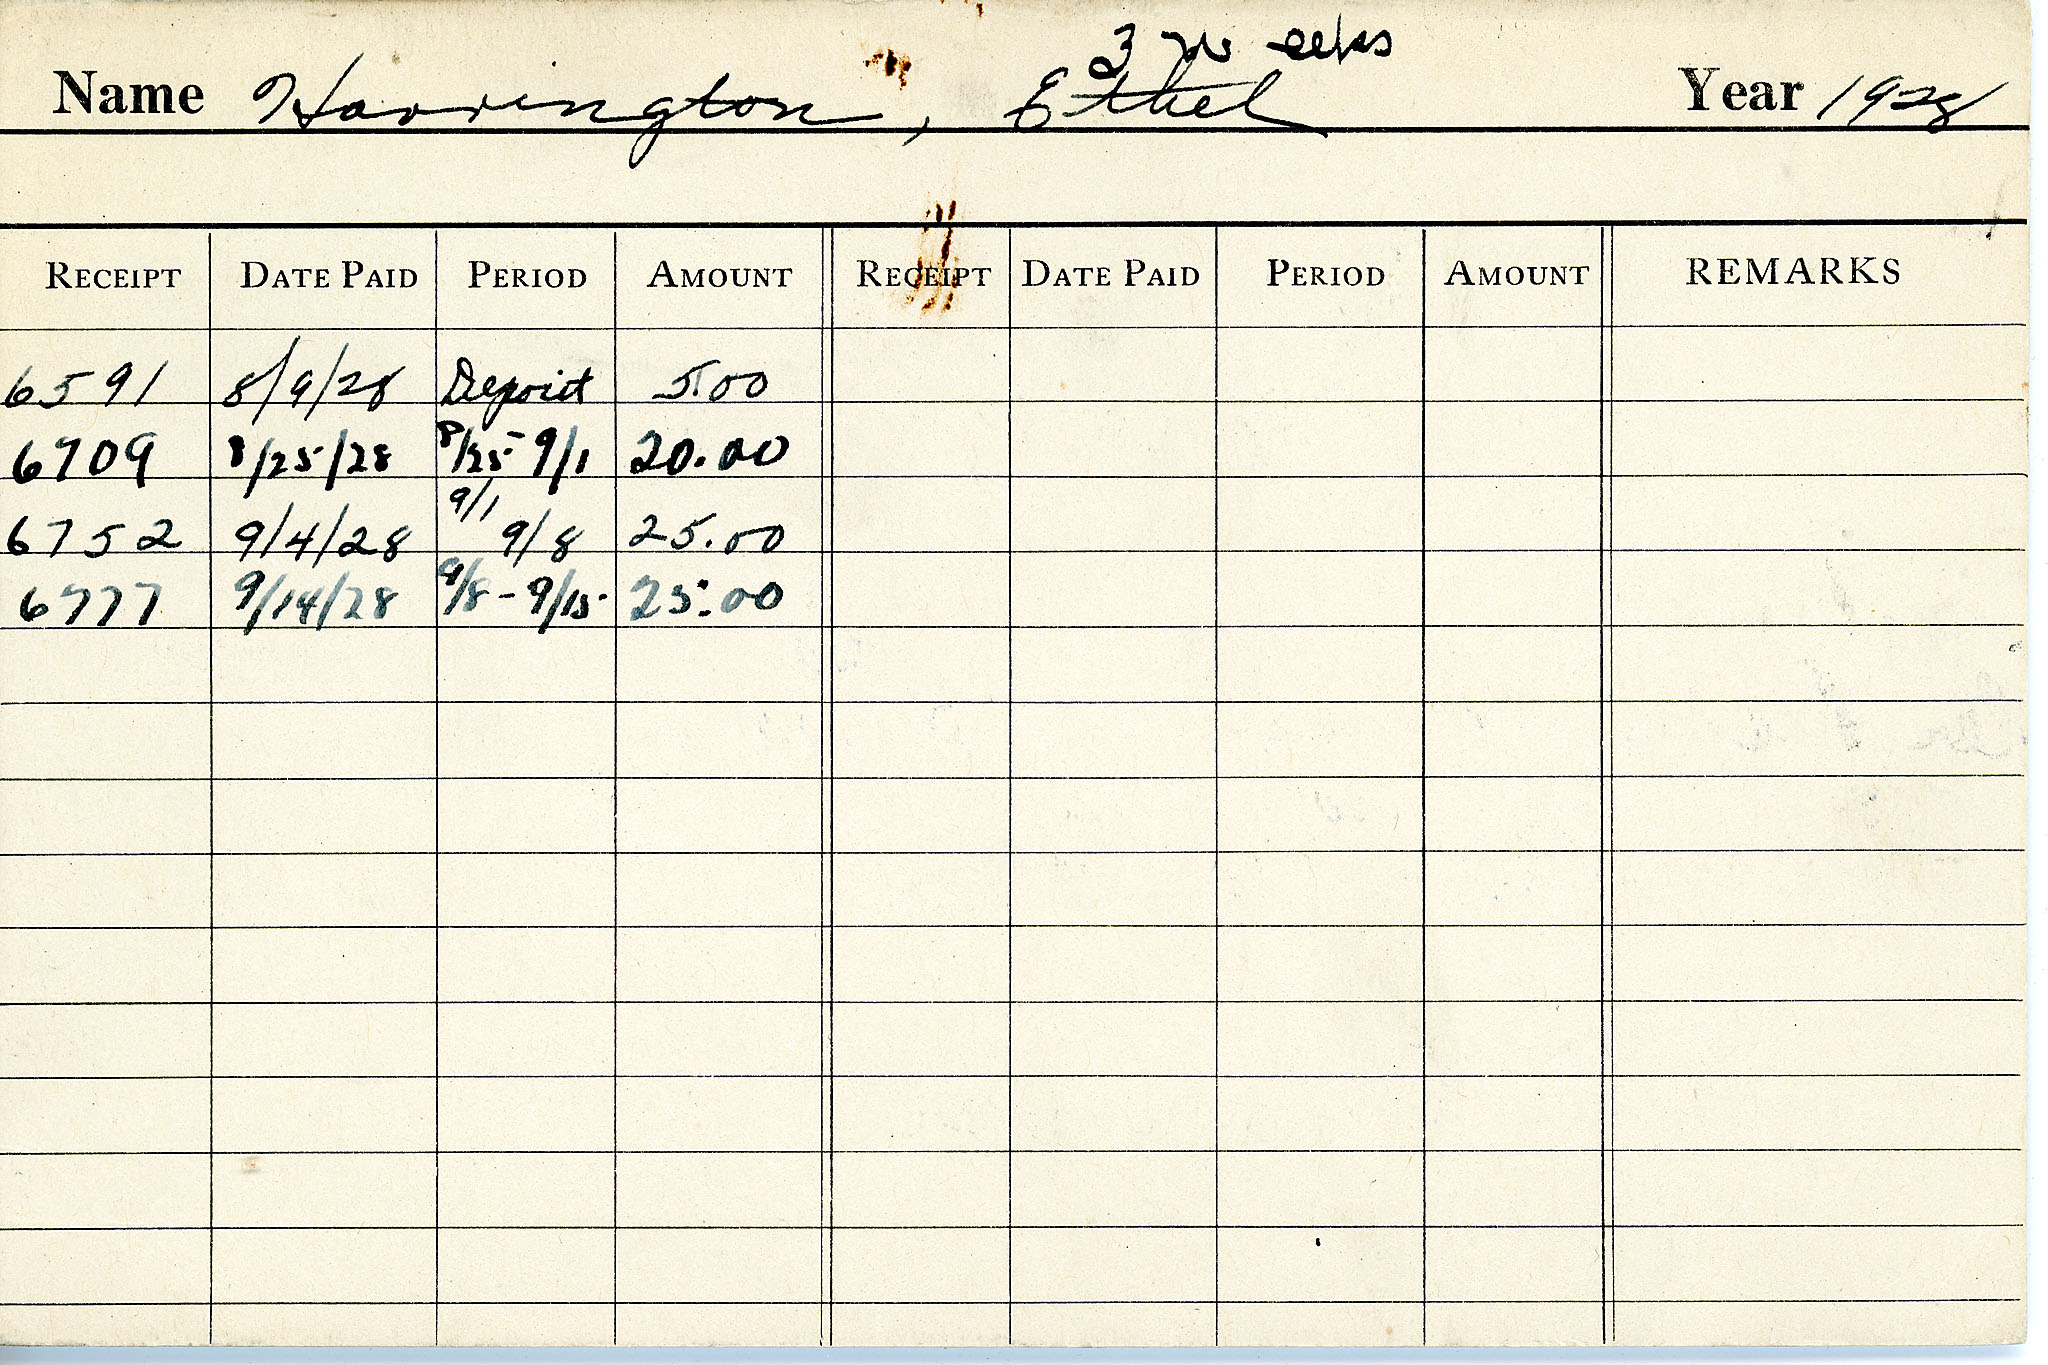 3 weeks
Name Harrington, Ethel Year 1928
RECEIPT DATE PAID PERIOD AMOUNT RECEIPT DATE PAID PERIOD AMOUNT REMARKS
6591 8/9/28 Deposit 5.00
6709 8/25/28 8/25-9/1 20.00
6752 9/4/28 9/1 9/8 25.00
6777 9/14/28 9/8-9/15 25.00